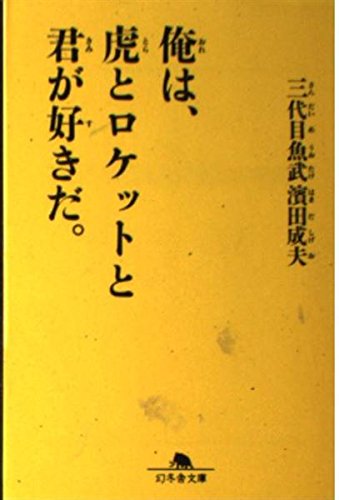 俺は、
虎とロケットと
君が好きだ。
三代目魚武濱田成夫
幻冬舎文庫